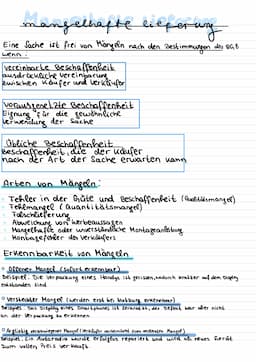 mangelhafte Lieferung
Eine Sache ist frei von Mängeln nach den Bestimmungen des BGB
wenn:
Vereinbarte Beschaffenheit
ausdrückliche Vereinbarung
zwischen Käufer und Verkäufer
Vorausgesetzte Beschaffenheit
Eignung für die gewöhnliche
Verwendung der Sache
Übliche Beschaffenheit
Beschaffenheit, die der Käufer
nach der Art der Sache erwarten kann
Arten von Mängeln:
- Fehler in der Güte und Beschaffenheit (Qualitätsmangel)
- Fehlmangel (Quantitätsmangel)
- Falschlieferung
- Abweichung von Werbeaussagen
- Mangelhafte oder unverständliche Montageanleitung
- Montagefehler des Verkäufers
Erkennbarkeit von Mängeln
Offener Mangel (sofort erkennbar)
Beispiel: Die Verpackung eines Handys ist gerissen, wodurch Kratzer auf dem Display
entstanden sind
Versteckter Mangel (werden erst bei Nutzung erkennbar)
Beispiel: Das Display eines Smartphones ist zerkratzt, der Defekt war aber nicht
an der Verpackung zu erkennen
Arglistig verschwiegener Mangel
Beispiel: Ein Autoradio wurde erfolglos repariert und wird als neues Gerät
zum vollen Preis verkauft